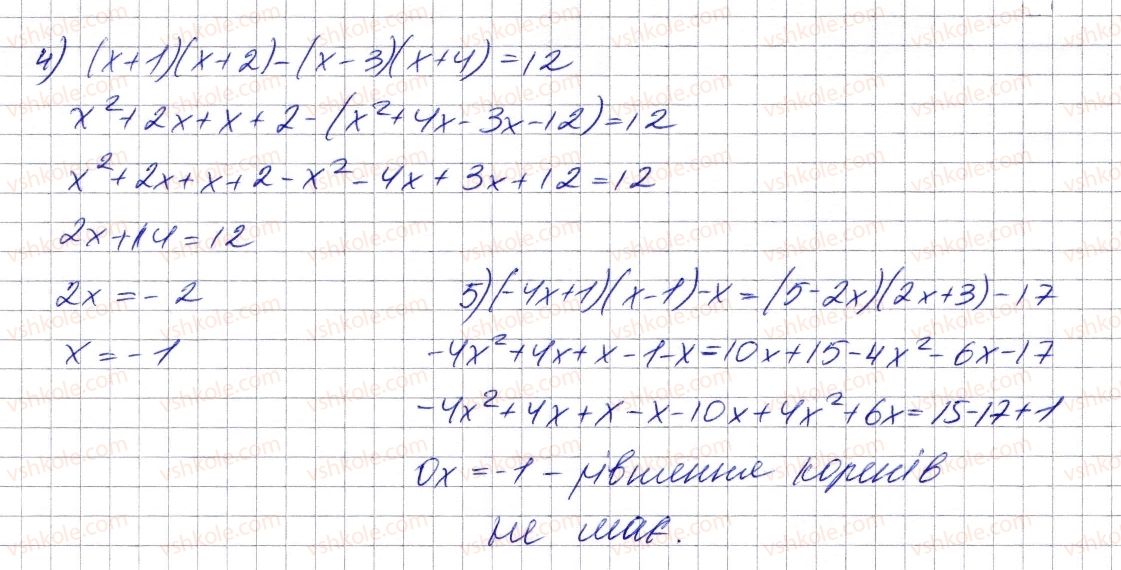 4) (x+1)(x+2)-(x-3)(x+4)=12
x²+2x+x+2-(x²+4x-3x-12)=12
x²+2x+x+2-x²-4x+3x+12=12
2x+14=12
2x=-2
x=-1
5)(-4x+1)(x-1)-x=(5-2x)(2x+3)-17
-4x²+4x+x-1-x=10x+15-4x²-6x-17
-4x²+4x+x-x-10x+4x²+6x=15-17+1
0x=-1 - рівняння коренів
не має.